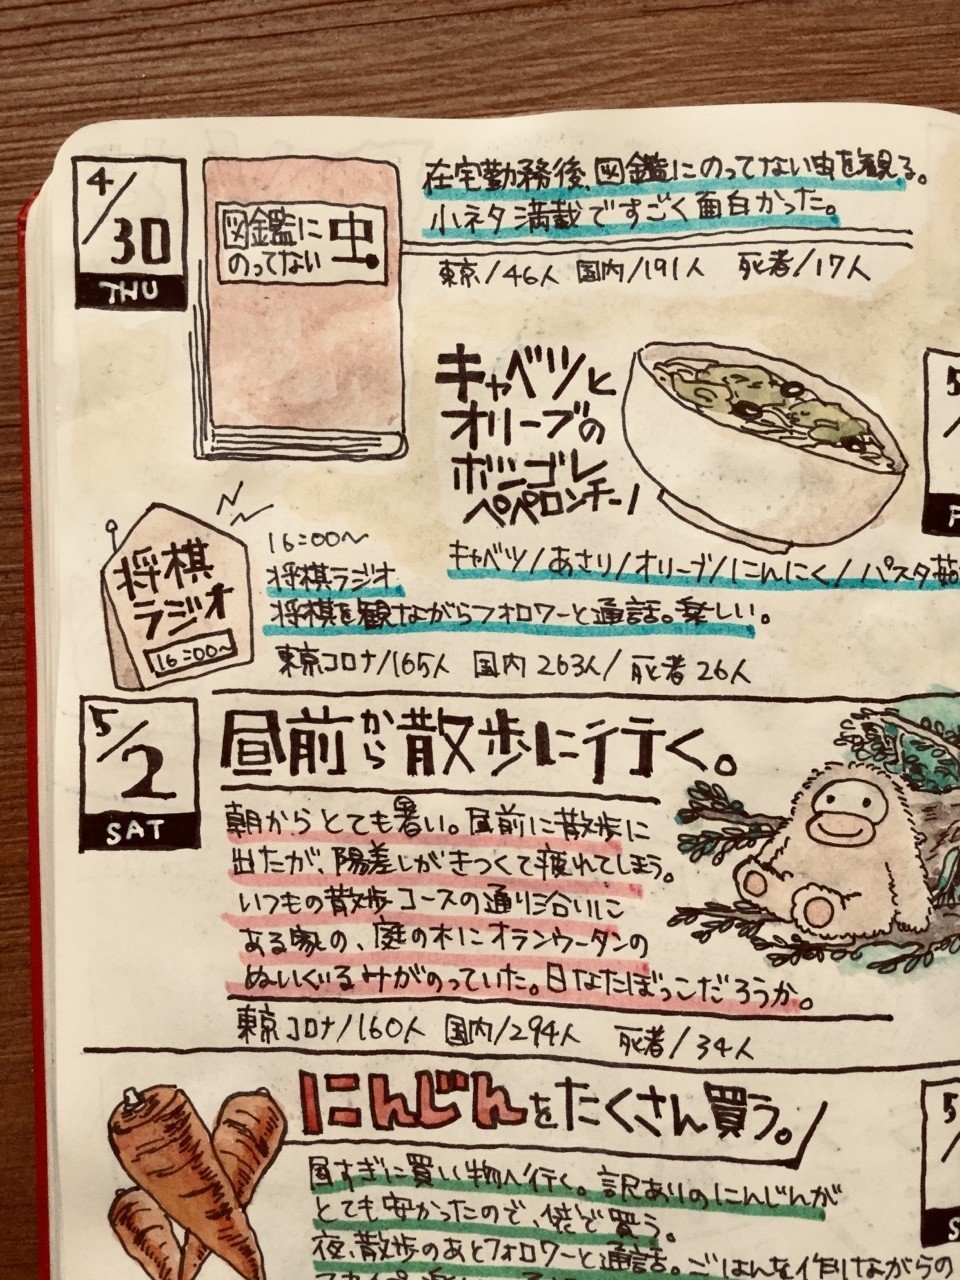 4/30
THU
図鑑に
のってない
虫。
在宅勤務後、図鑑にのってない虫を観る。
小ネタ満載ですごく面白かった。
東京/46人 国内/191人 死者/17人
キャベツと
オリーブの
ボンゴレ
ペペロンチーノ
キャベツ/あさり/オリーブ/にんにく/パスタ茹
将棋
ラジオ
16:00〜
16:00〜
将棋ラジオ
将棋を観ながらフォロワーと通話。楽しい。
東京コロナ/165人 国内263人/死者26人
5/2
SAT
昼前から散歩に行く。
朝からとても暑い。昼前に散歩に
出たが、陽差しがきつくて疲れてしまう。
いつもの散歩コースの通り沿いに
ある家の、庭の木にオランウータンの
ぬいぐるみがのっていた。日なたぼっこだろうか。
東京コロナ/160人 国内/294人 死者/34人
にんじんをたくさん買う。
昼すぎに買い物へ行く。訳ありのにんじんが
とても安かったので、袋で買う。
夜、散歩のあとフォロワーと通話。ごはんを作りながらの
5/
5/